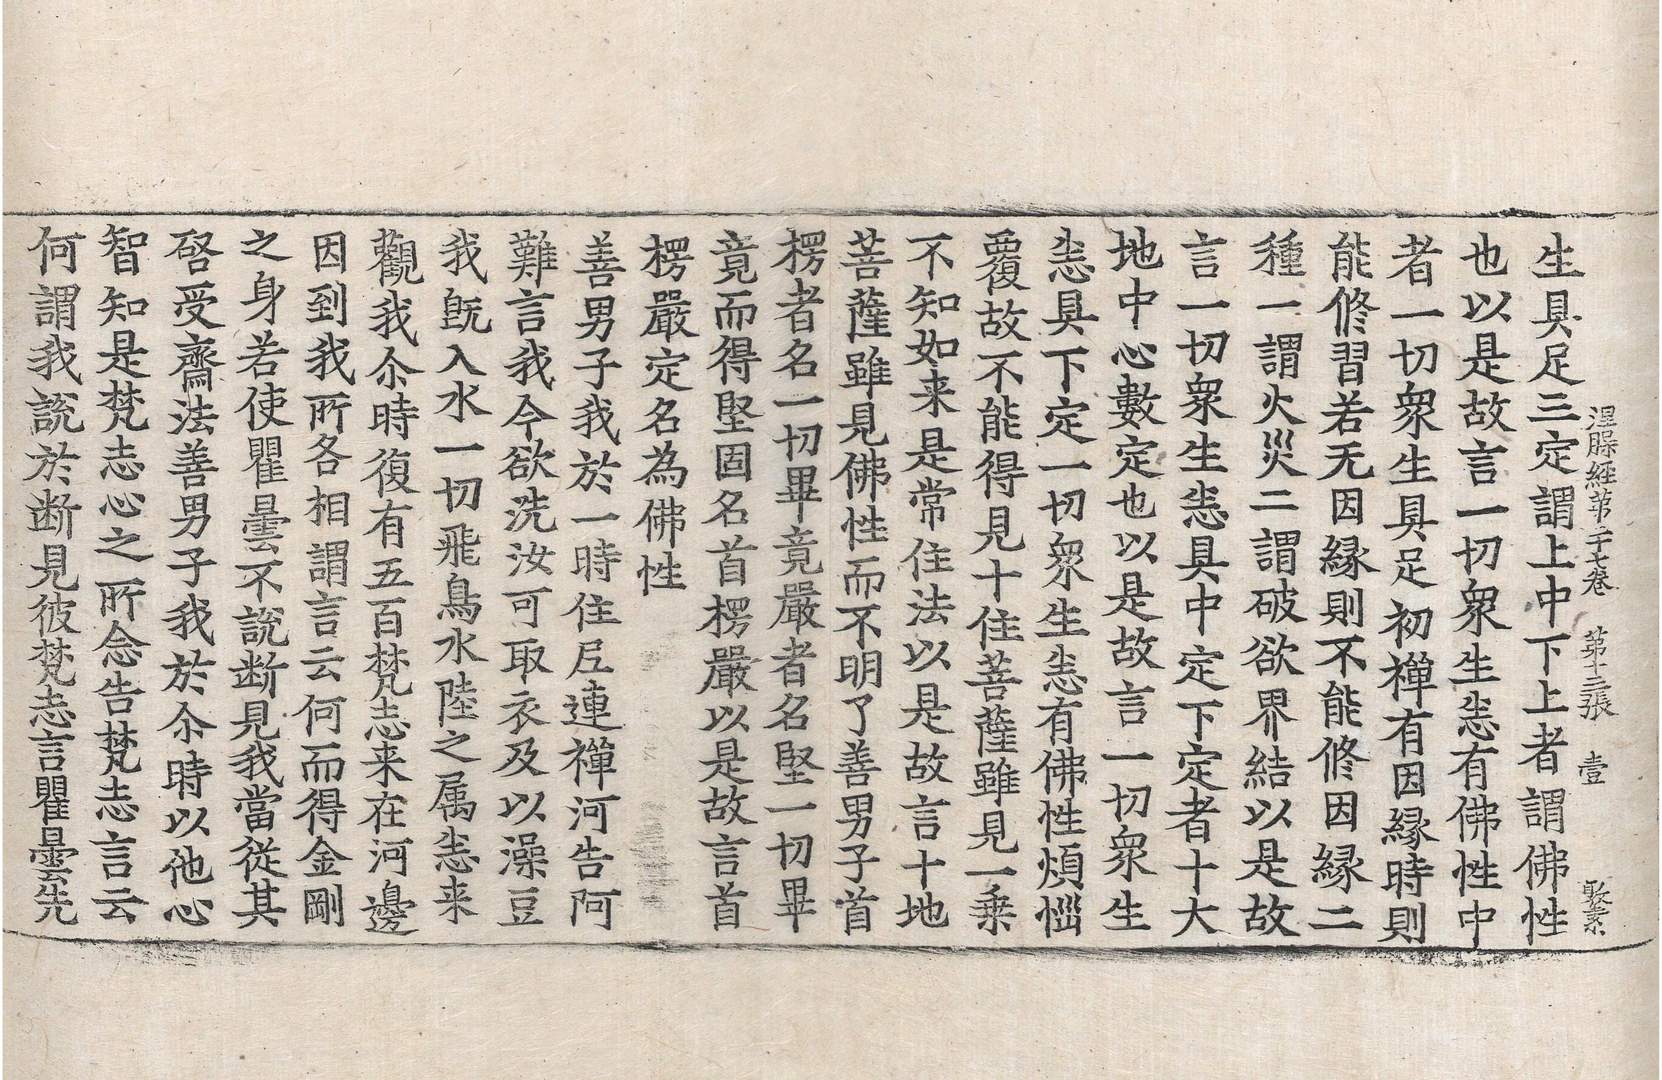 涅槃經第二十七卷 第十二張 壹
生具足三定謂上中下上者謂佛性
也以是故言一切衆生悉有佛性中
者一切衆生具足初禪有因縁時則
能修習若无因縁則不能修因縁二
種一謂火災二謂破欲界結以是故
言一切衆生悉具中定下定者十大
地中心數定也以是故言一切衆生
悉具下定一切衆生悉有佛性煩惱
覆故不能得見十住菩薩雖見一乗
不知如来是常住法以是故言十地
菩薩雖見佛性而不明了善男子首
楞者名一切畢竟嚴者名堅一切畢
竟而得堅固名首楞嚴以是故言首
楞嚴定名為佛性
善男子我於一時住尼連禪河告阿
難言我今欲洗汝可取衣及以澡豆
我既入水一切飛鳥水陸之属悉来
觀我尒時復有五百梵志来在河邊
因到我所各相謂言云何而得金剛
之身若使瞿曇不說断見我當從其
啓受齋法善男子我於尒時以他心
智知是梵志心之所念告梵志言云
何謂我說於断見彼梵志言瞿曇先